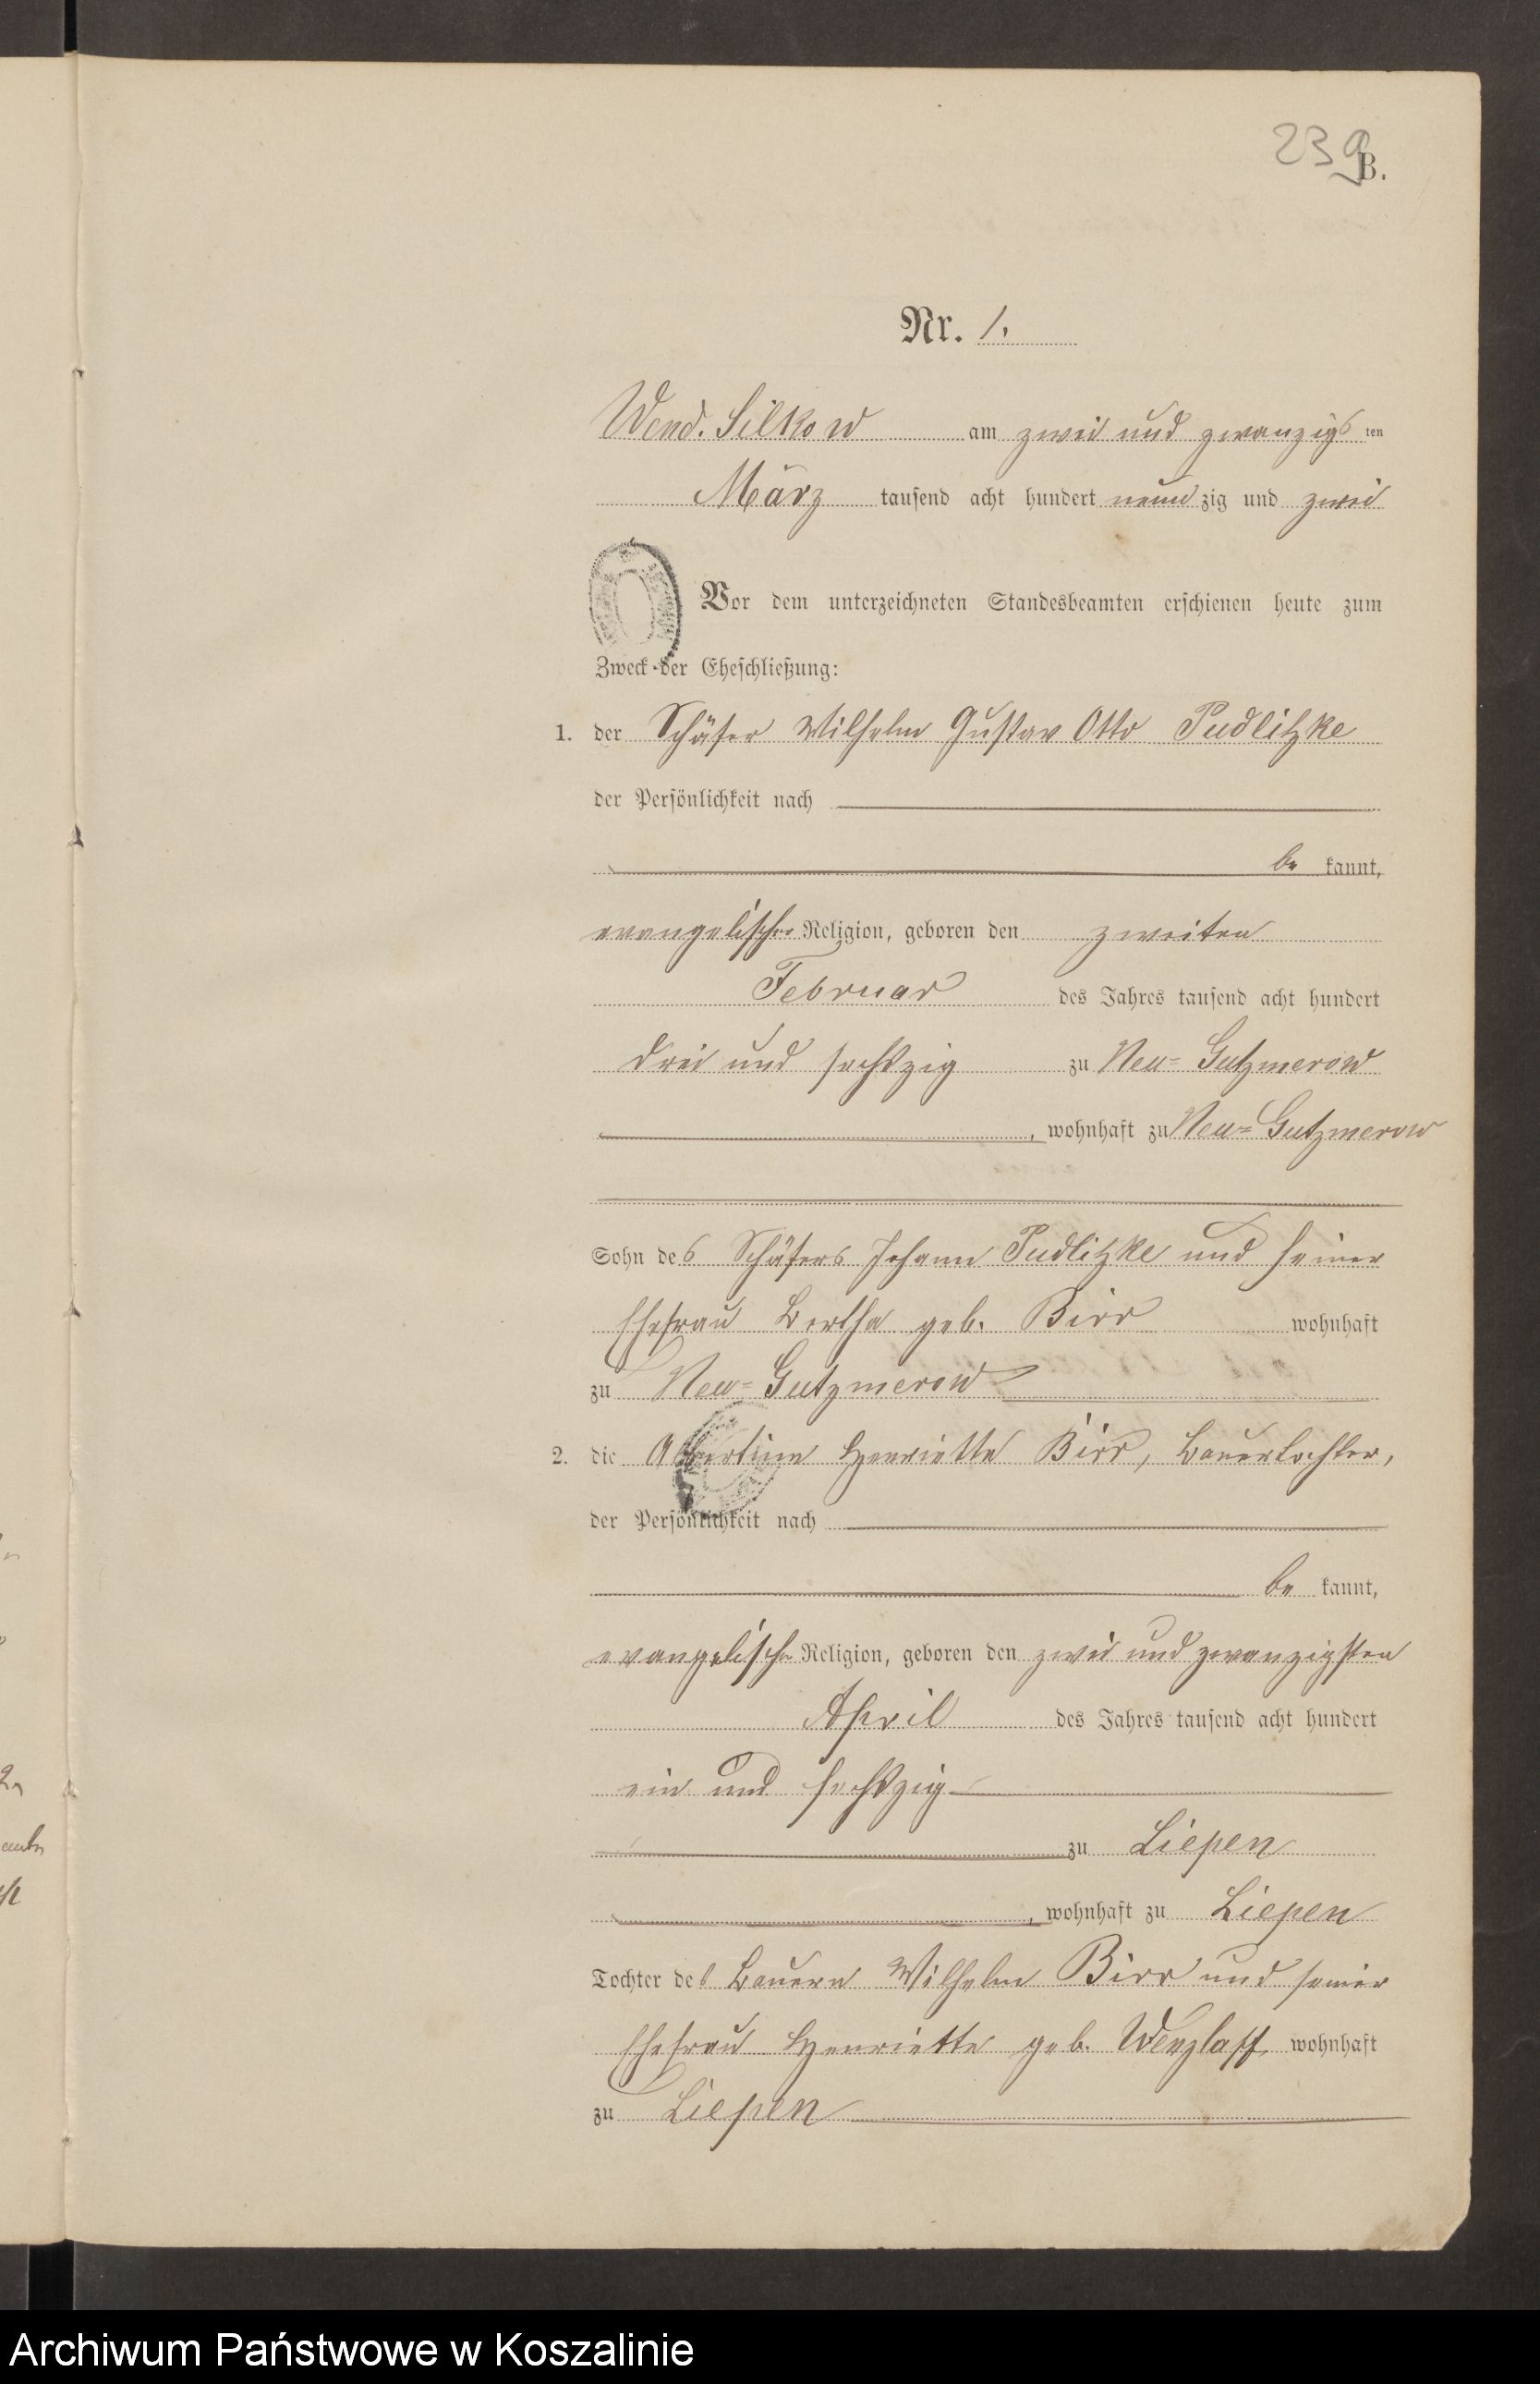 239
B.
Nr. 1.
Wend. Silkow am zwei und zwanzigsten
März tausend acht hundert neunzig und zwei
Vor dem unterzeichneten Standesbeamten erschienen heute zum
Zweck der Eheschließung:
1. der Schäfer Wilhelm Gustav Otto Pudlitzke
der Persönlichkeit nach
be kannt,
evangelischer Religion, geboren den zweiten
Februar des Jahres tausend acht hundert
drei und sechszig zu Neu-Gutzmerow
, wohnhaft zu Neu-Gutzmerow
Sohn des Schäfers Johann Pudlitzke und seiner
Ehefrau Bertha geb. Birr wohnhaft
zu Neu-Gutzmerow
2. die Albertine Henriette Birr, Bauertochter,
der Persönlichkeit nach
be kannt,
evangelischer Religion, geboren den zwei und zwanzigsten
April des Jahres tausend acht hundert
ein und sechszig
zu Liepen
, wohnhaft zu Liepen
Tochter des Bauern Wilhelm Birr und seiner
Ehefrau Henriette geb. Wenzlaff wohnhaft
zu Liepen
Archiwum Państwowe w Koszalinie